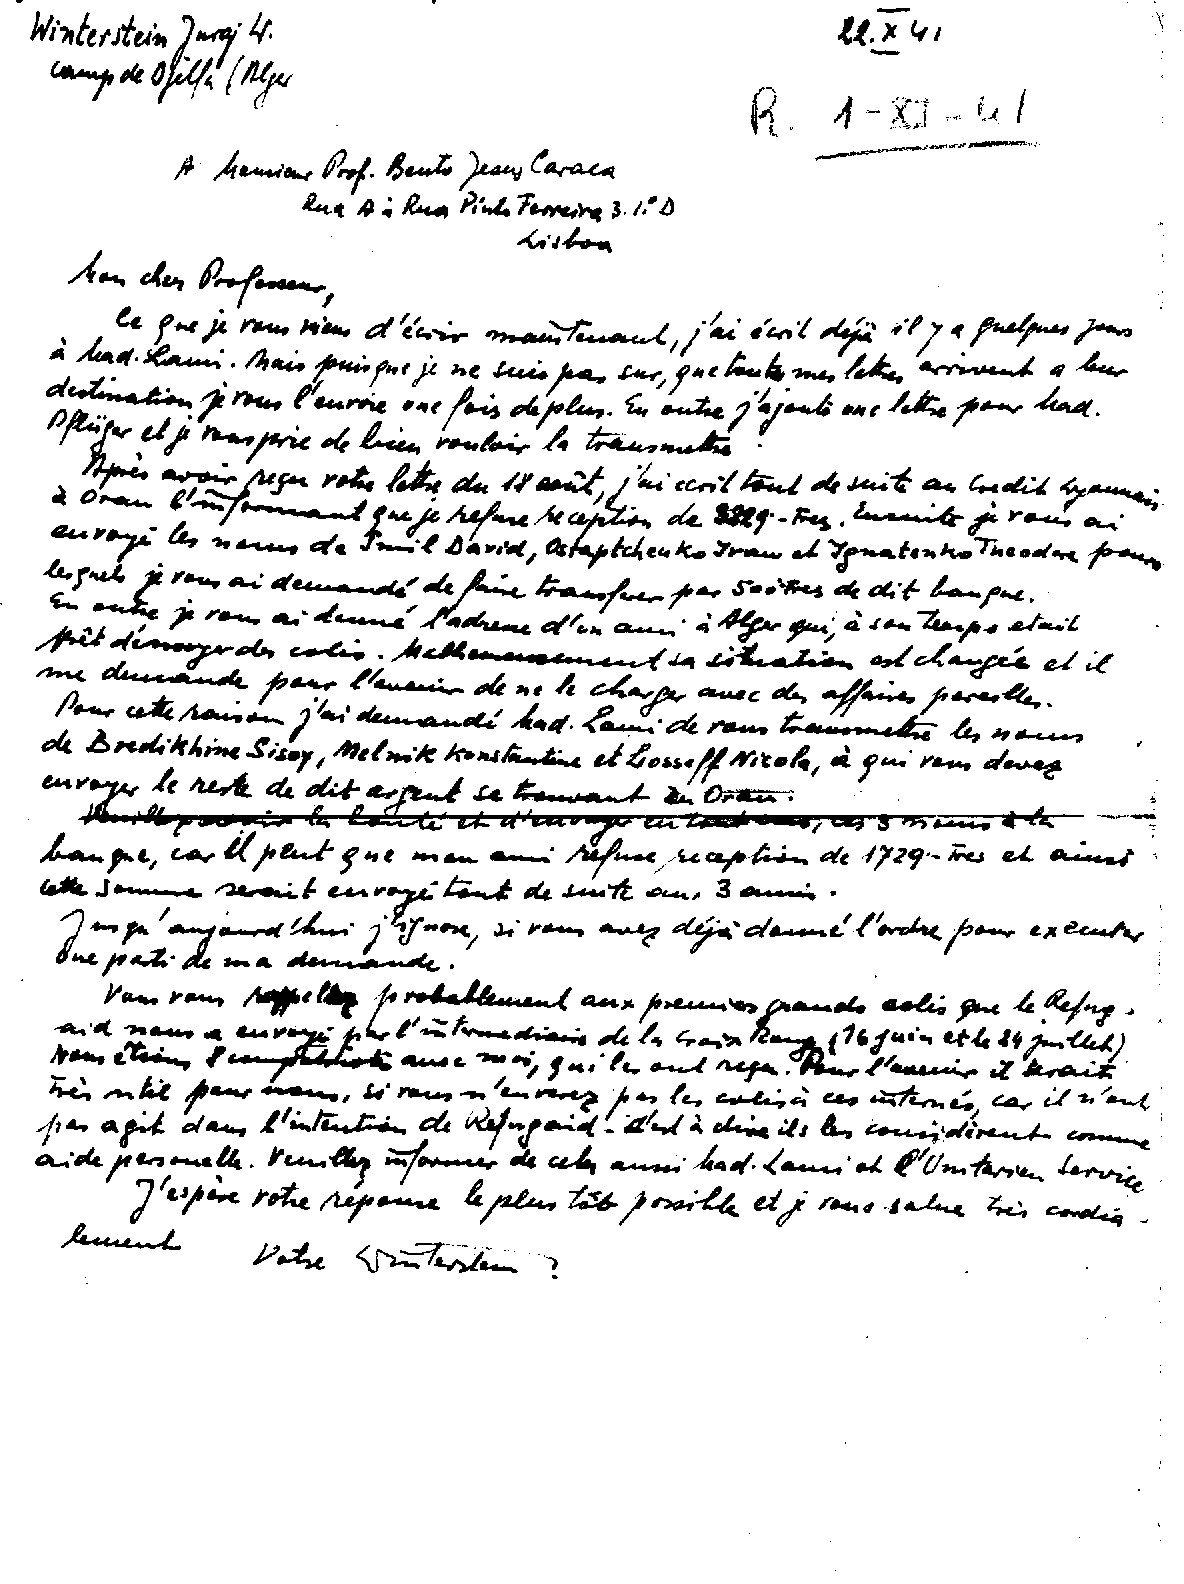 Winterstein Juraj W.
22.X 41
camp de Djelfa (Alger
R. 1-XI-41
A Monsieur Prof. Bento Jesus Caraca
Rua A à Rua Pinto Ferreira 3.1.° D
Lisboa
Mon cher Professeur,
Ce que je vous viens d'écrir maintenant, j'ai écrit déjà il y a quelques jours
à Mad. Lami. Mais puisque je ne suis pas sur, que toutes mes lettres arrivent a leur
destination je vous l'envoie une fois de plus. En outre j'ajoute une lettre pour Mad.
Pflüger et je vous prie de bien vouloir la transmettre.
Après avoir reçu votre lettre du 18 août, j'ai ecrit tout de suite au Credit Lyonnais
à Oran l'informant que je refuse reception de 3229-Frcs. Ensuite je vous ai
envoyé les noms de Smil David, Ostaptchenko Ivan et Ignatenko Theodore pour
lesquels je vous ai demandé de faire transferer par 500 Frcs de dit banque.
En outre je vous ai donné l'adresse d'un ami à Alger qui, à son temps etait
prêt d'envoyer des colis. Malheureusement sa situation est changée et il
me demande pour l'avenir de ne le charger avec des affaires pareilles.
Pour cette raison j'ai demandé Mad. Lami de vous transmettre les noms
de Bredikhine Sisoy, Melnik Konstantine et Losseff Nicola, à qui vous devez
envoyer le reste de dit argent se trouvant en Oran.
la bonté et d'envoyer en tout cas, ces 3 noms à la
banque, car il peut que mon ami refuse reception de 1729-Frcs et ainsi
cette somme serait envoyé tout de suite aux 3 amis.
Jusqu'aujourd'hui j'ignore, si vous avez déjà donné l'ordre pour executer
une parti de ma demande.
Vous vous rappellez probablement aux premiers grands colis que le Refug-
aid nous a envoyé par l'intermediaire de la Croix Rouge (16 juin et le 24 juillet)
Nous étions 8 compatriots avec moi, qui les ont reçu. Pour l'avenir il serait
très util pour nous, si vous n'enverez pas les colis à ces internés, car il n'ont
pas agit dans l'intention de Refugaid - C'est à dire ils les considèrent comme
aide personelle. Veuillez informer de cela aussi Mad. Lami et l'Unitarien Service
J'espère votre réponse le plus tôt possible et je vous salue très cordia-
lement Votre Winterstein J.